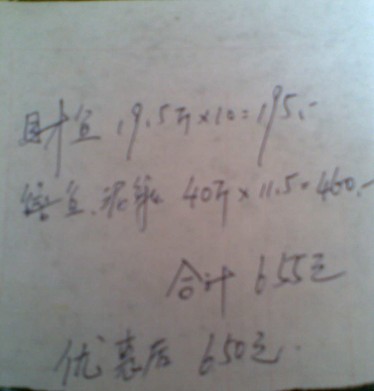 鱼 19.5斤×10=195.-
鱼.泥鳅 40斤×11.5=460.-
合计 655元
优惠后 650元.